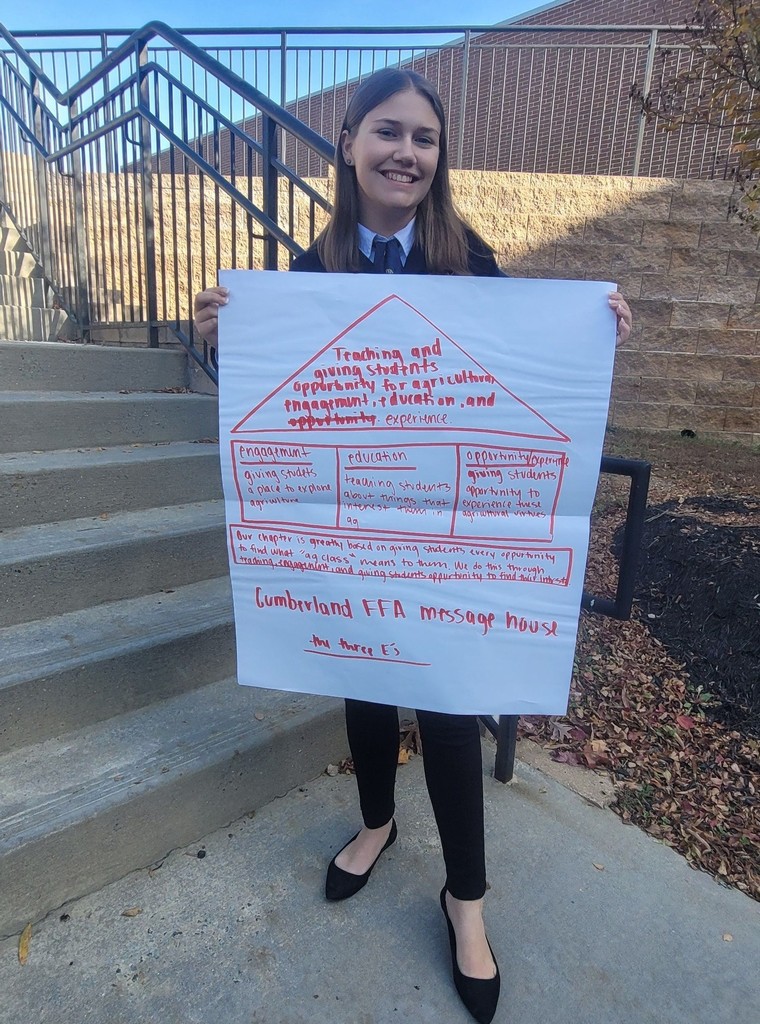 Teaching and
giving students
opportunity for agricultural
engagement, education, and
opportunity experience.
engagement
giving studets
a place to explore
agriculture
education
teaching students
about things that
interest them in
ag
opportunity/experience
giving students
opportunity to
experience these
agricultural virtues
Our chapter is greatly based on giving students every opportunity
to find what "ag class" means to them. We do this through
training, engagement, and giving students opportunity to find their interests
Cumberland FFA message house
the three E's